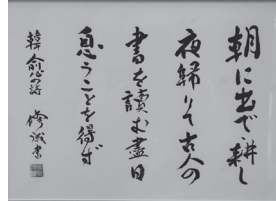 朝に出で耕し
夜歸りて古人の
書を讀む盡日
息うことを得ず
韓愈の詩